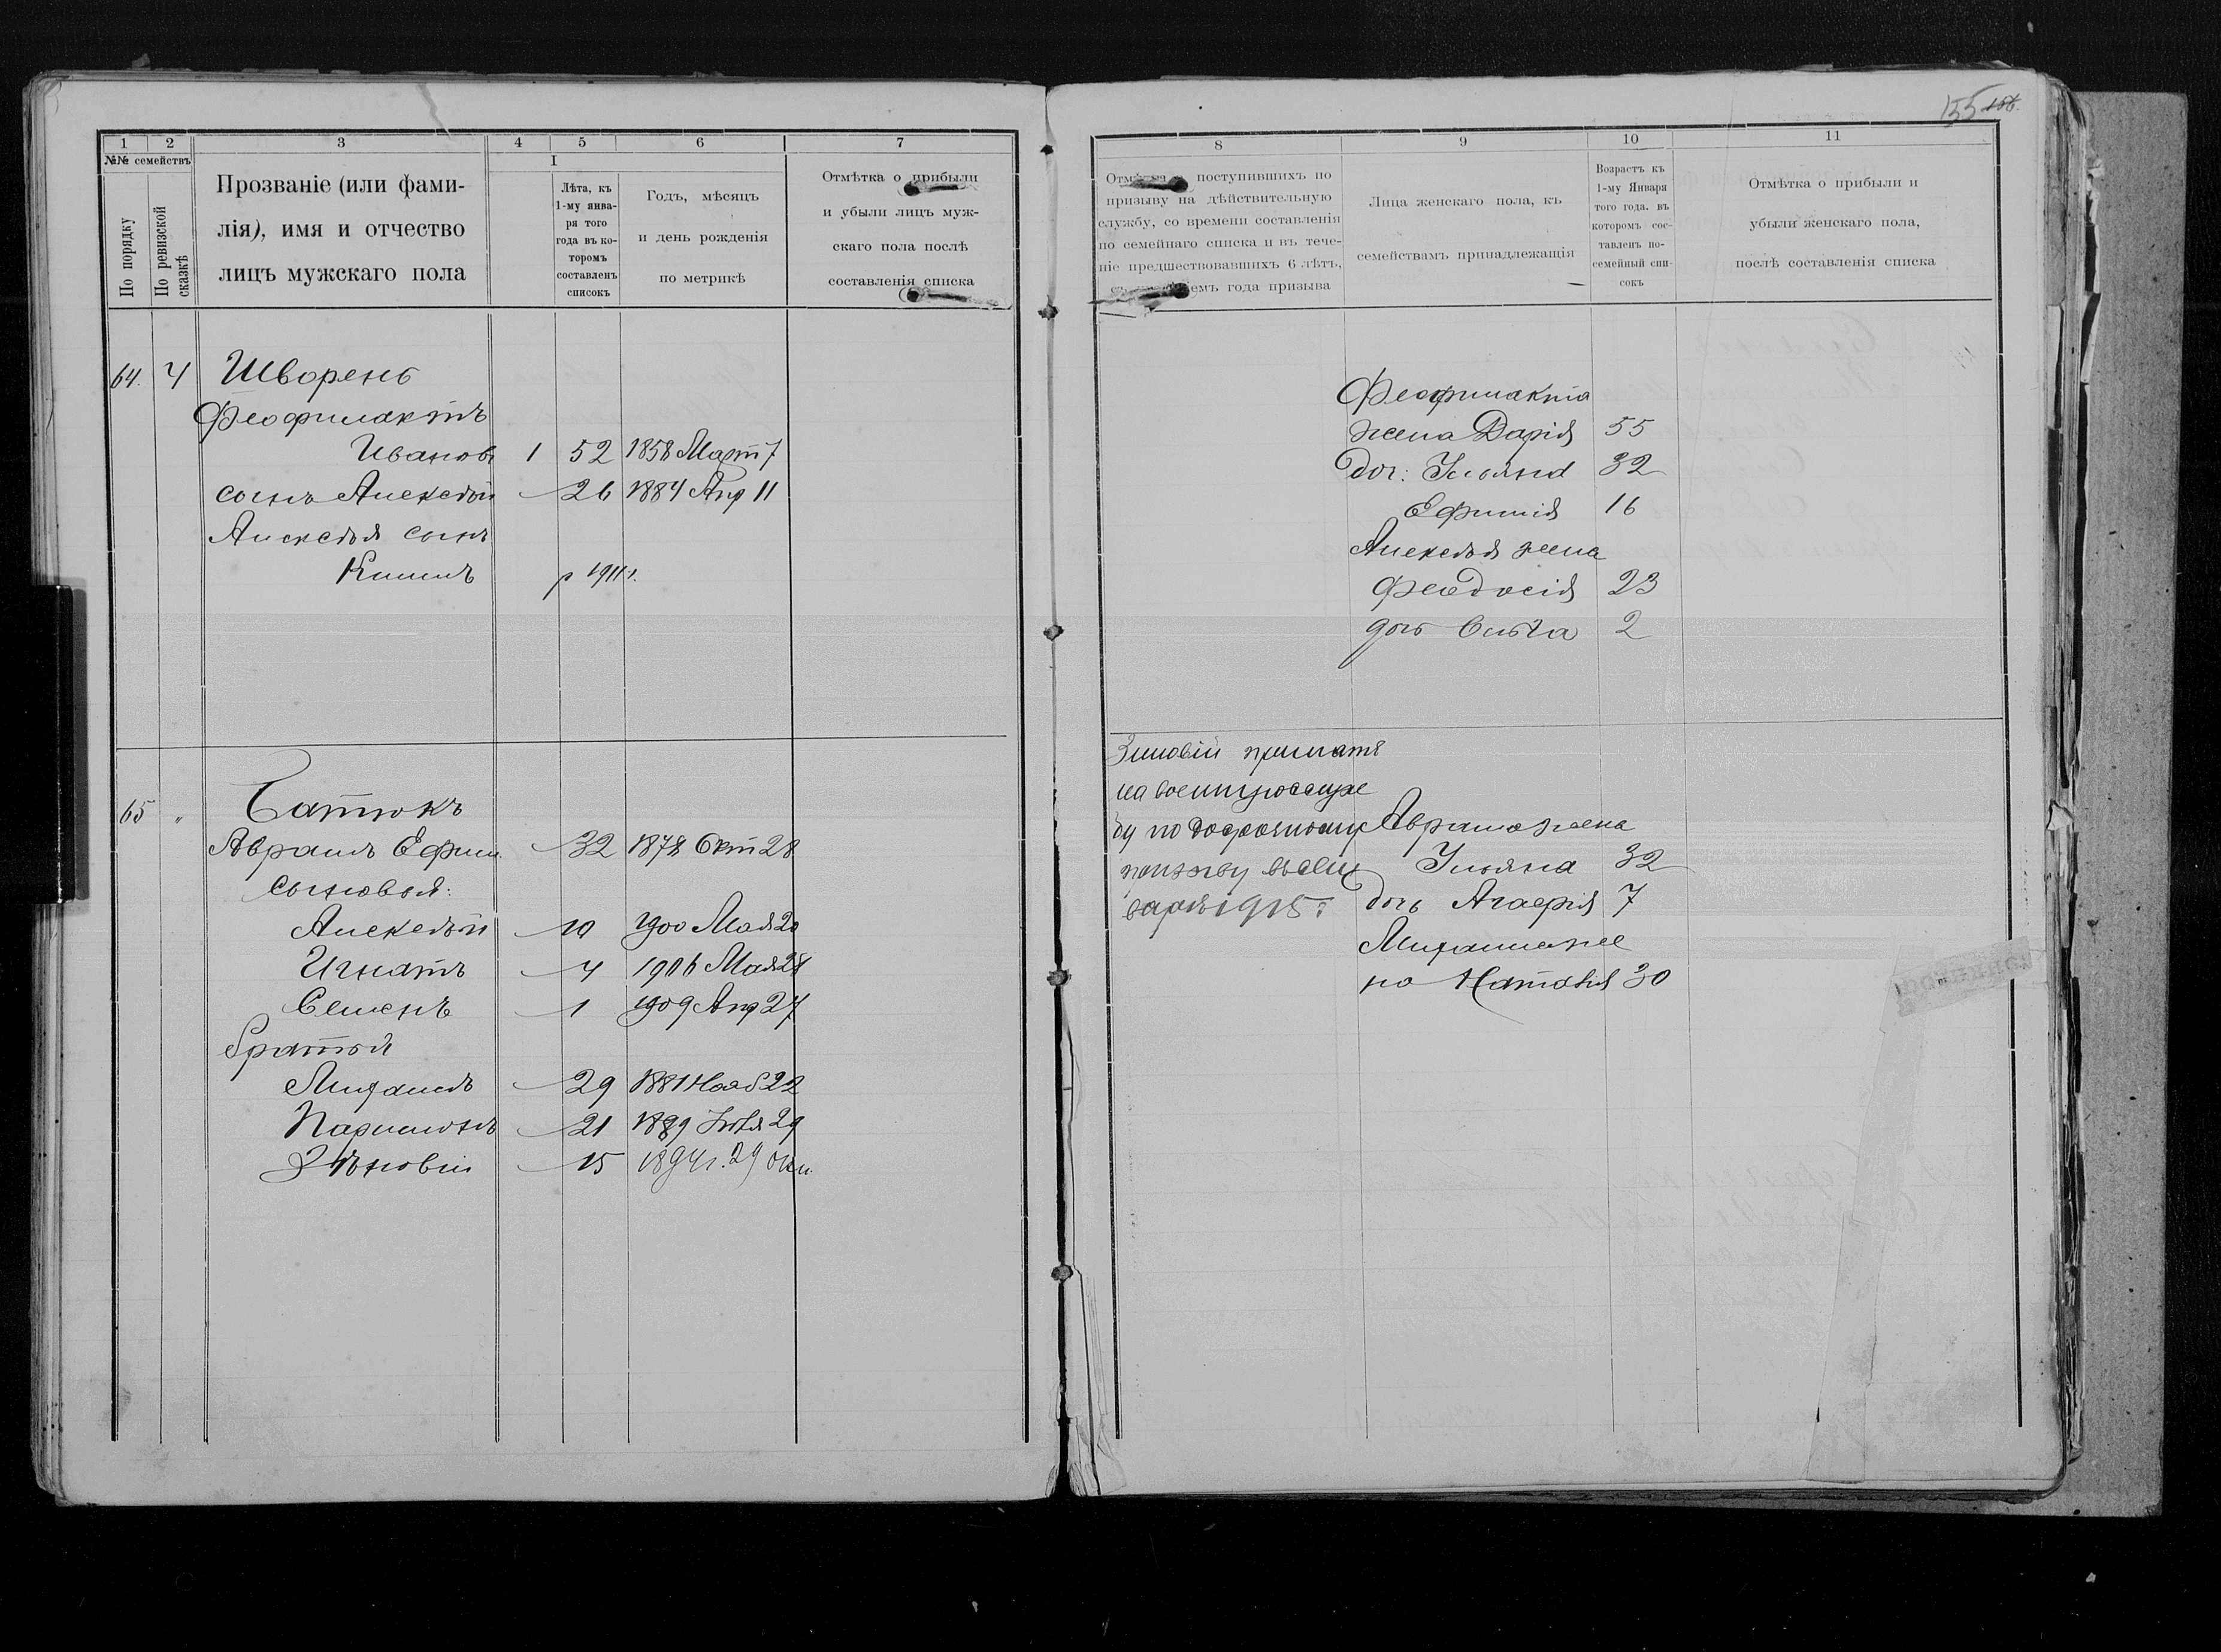 155 156.
1 2 3 4 5 6 7
№№ семействъ
По порядку
По ревизской сказкѣ
Прозваніе (или фами-
лія), имя и отчество
лицъ мужскаго пола
I
Лѣта, къ
1-му янва-
ря того
года въ ко-
торомъ
составленъ
списокъ
Годъ, мѣсяцъ
и день рожденія
по метрикѣ
Отмѣтка о прибыли
и убыли лицъ муж-
скаго пола послѣ
составленія списка
64. 4 Шворень
Феофилактъ
Иванов 1 52 1858 Март 7
сынъ Алексѣй 26 1884 Апр 11
Алексѣя сынъ
р 1911 г.
65 " Батюкъ
Аврамъ Ефим 32 1878 Окт 28
сыновья:
Алексѣй 10 1900 Мая 20
Игнатъ 4 1906 Мая 28
Семенъ 1 1909 Апр 27
братья
Михаилъ 29 1881 Нояб 22
Парамонъ 21 1889 Іюля 29
Зѣновій 15 1894 г. 29 Окт.
8 9 10 11
поступившихъ по
призыву на дѣйствительную
службу, со времени составленія
по семейнаго списка и въ тече-
ніе предшествовавшихъ 6 лѣтъ,
года призыва
Лица женскаго пола, къ
семействамъ принадлежащія
Возрастъ къ
1-му Января
того года. въ
которомъ сос-
тавленъ по-
семейный спи-
сокъ
Отмѣтка о прибыли и
убыли женскаго пола,
послѣ составленія списка
Феофилакта
жена Дарія 55
доч: Ульяна 32
Ефимія 16
Алексѣя жена
Феодосія 23
дочь Ольга 2
Зиновій принятъ
на воен службу
по досрочному
призыву въ ян
варѣ 1915 г
Аврама жена
Ульяна 32
дочь Агафія 7
Михаила же
на Наталія 30